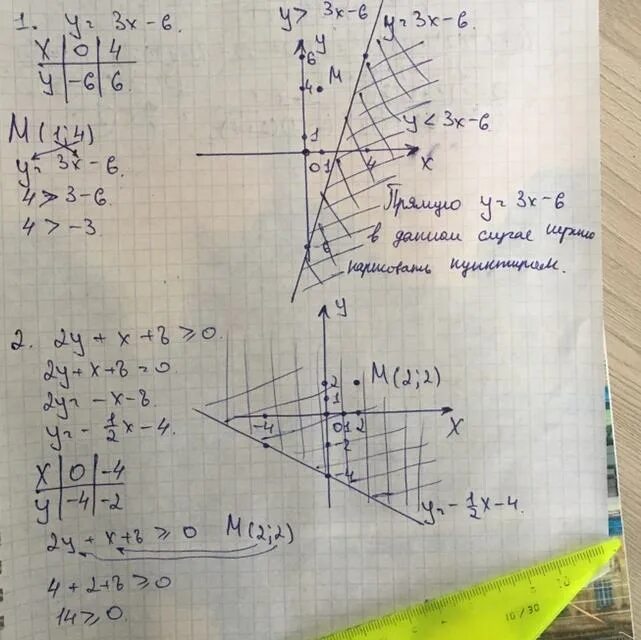 1. y = 3x-6.
x 0 4
y -6 6
M(1;4)
y = 3x-6.
4 > 3-6.
4 > -3
y > 3x-6
y = 3x-6.
y
6
4
M
1
0 1 4
x
y < 3x-6
6
Прямую y = 3x-6
в данном случае нужно
нарисовать пунктиром.
2. 2y + x + 8 ≥ 0.
2y + x + 8 = 0.
2y = -x-8.
y = -1/2x-4.
x 0 -4
y -4 -2
2y + x + 8 ≥ 0 M(2;2)
4 + 2 + 8 ≥ 0
14 ≥ 0.
y
M(2;2)
2
1
-4 0 1 2
x
-2
-4
y = -1/2x-4.
10/30